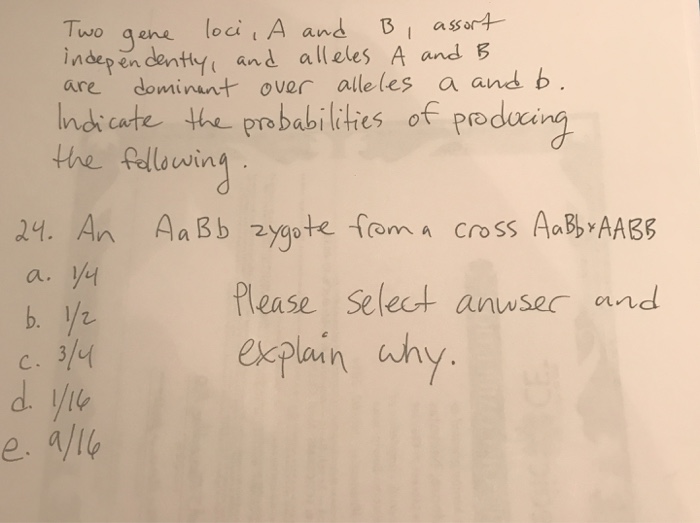 Two gene loci, A and B, assort
independently, and alleles A and B
are dominant over alleles a and b.
Indicate the probabilities of producing
the following.
24. An AaBb zygote from a cross AaBb×AABB
a. 1/4
b. 1/2
c. 3/4
d. 1/16
e. 9/16
Please select anwser and
explain why.